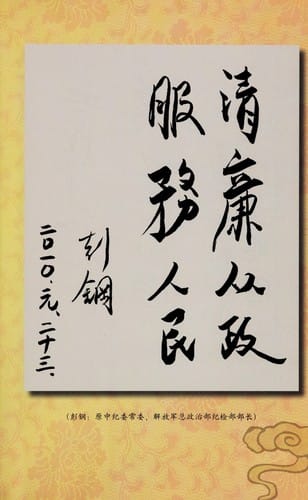 清廉从政
服務人民
彭鋼
二〇一〇、元、二十三、
(彭钢：原中纪委常委、解放军总政治部纪检部部长)